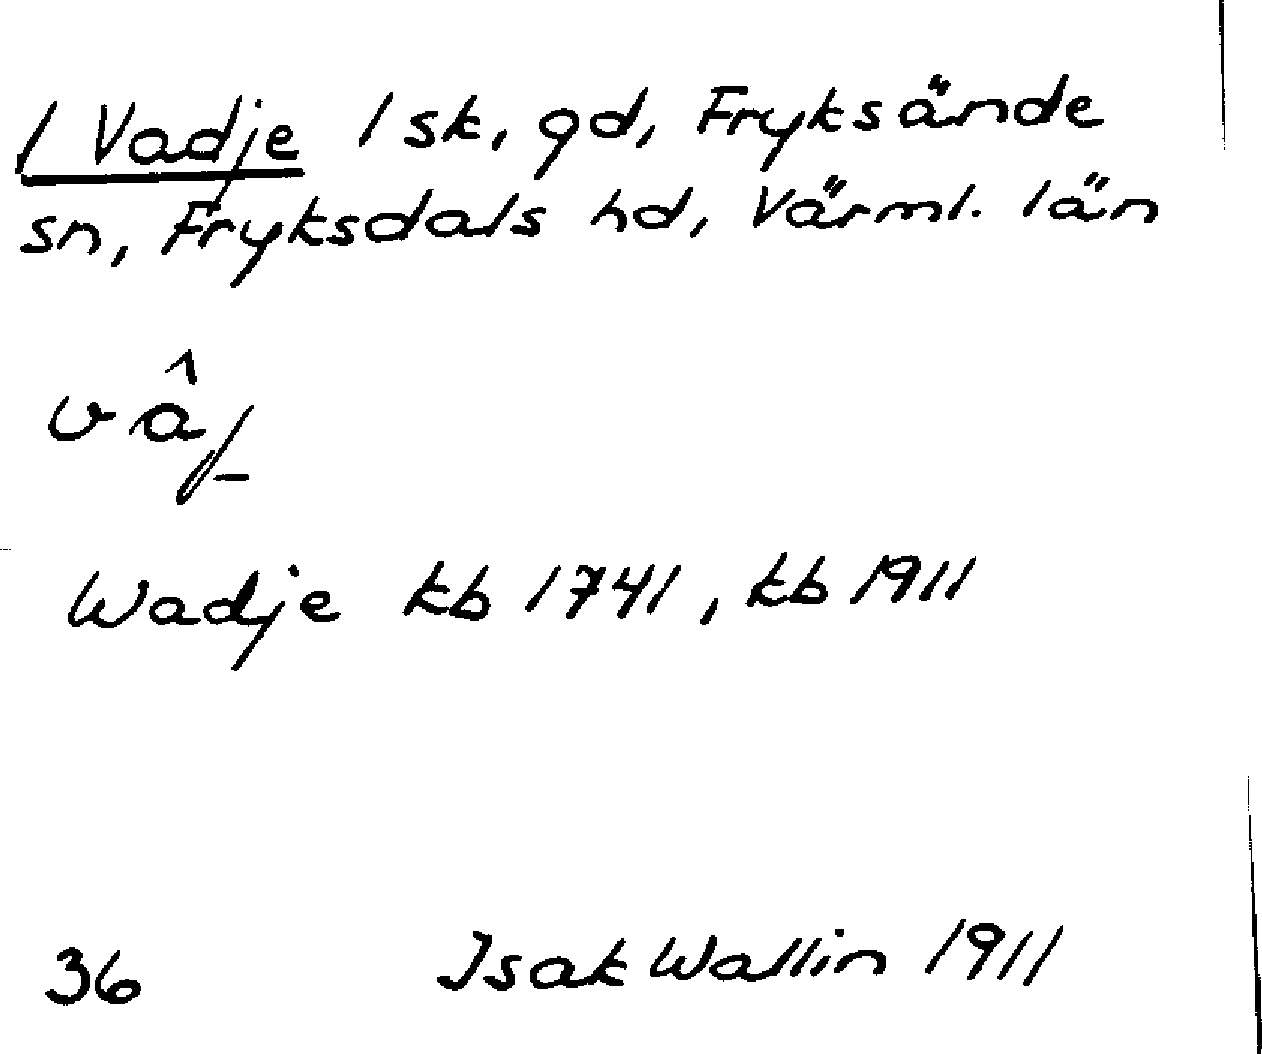 1 Vadje 1 sk, gd, Fryksände
sn, Fryksdals hd, Värml. län
Wadje kb 1741, kb 1911
36 Isak Wallin 1911